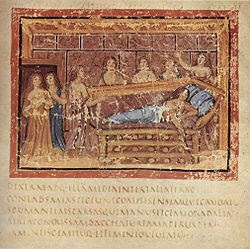 DIXERATATQ·ILLAMMEDIAINTERTALIAFERRO
CONLAPSAMASPICIUNTCOMITESENSEMQ·CRUORE
SPUMANTEMSPARSASQ·MANUSITCLAMORADALTA
ATRIACONCUSSAMBACCHATURFAMAPERURBEM
LAMENTISGEMITUQ·ETFEMINEOULULATU